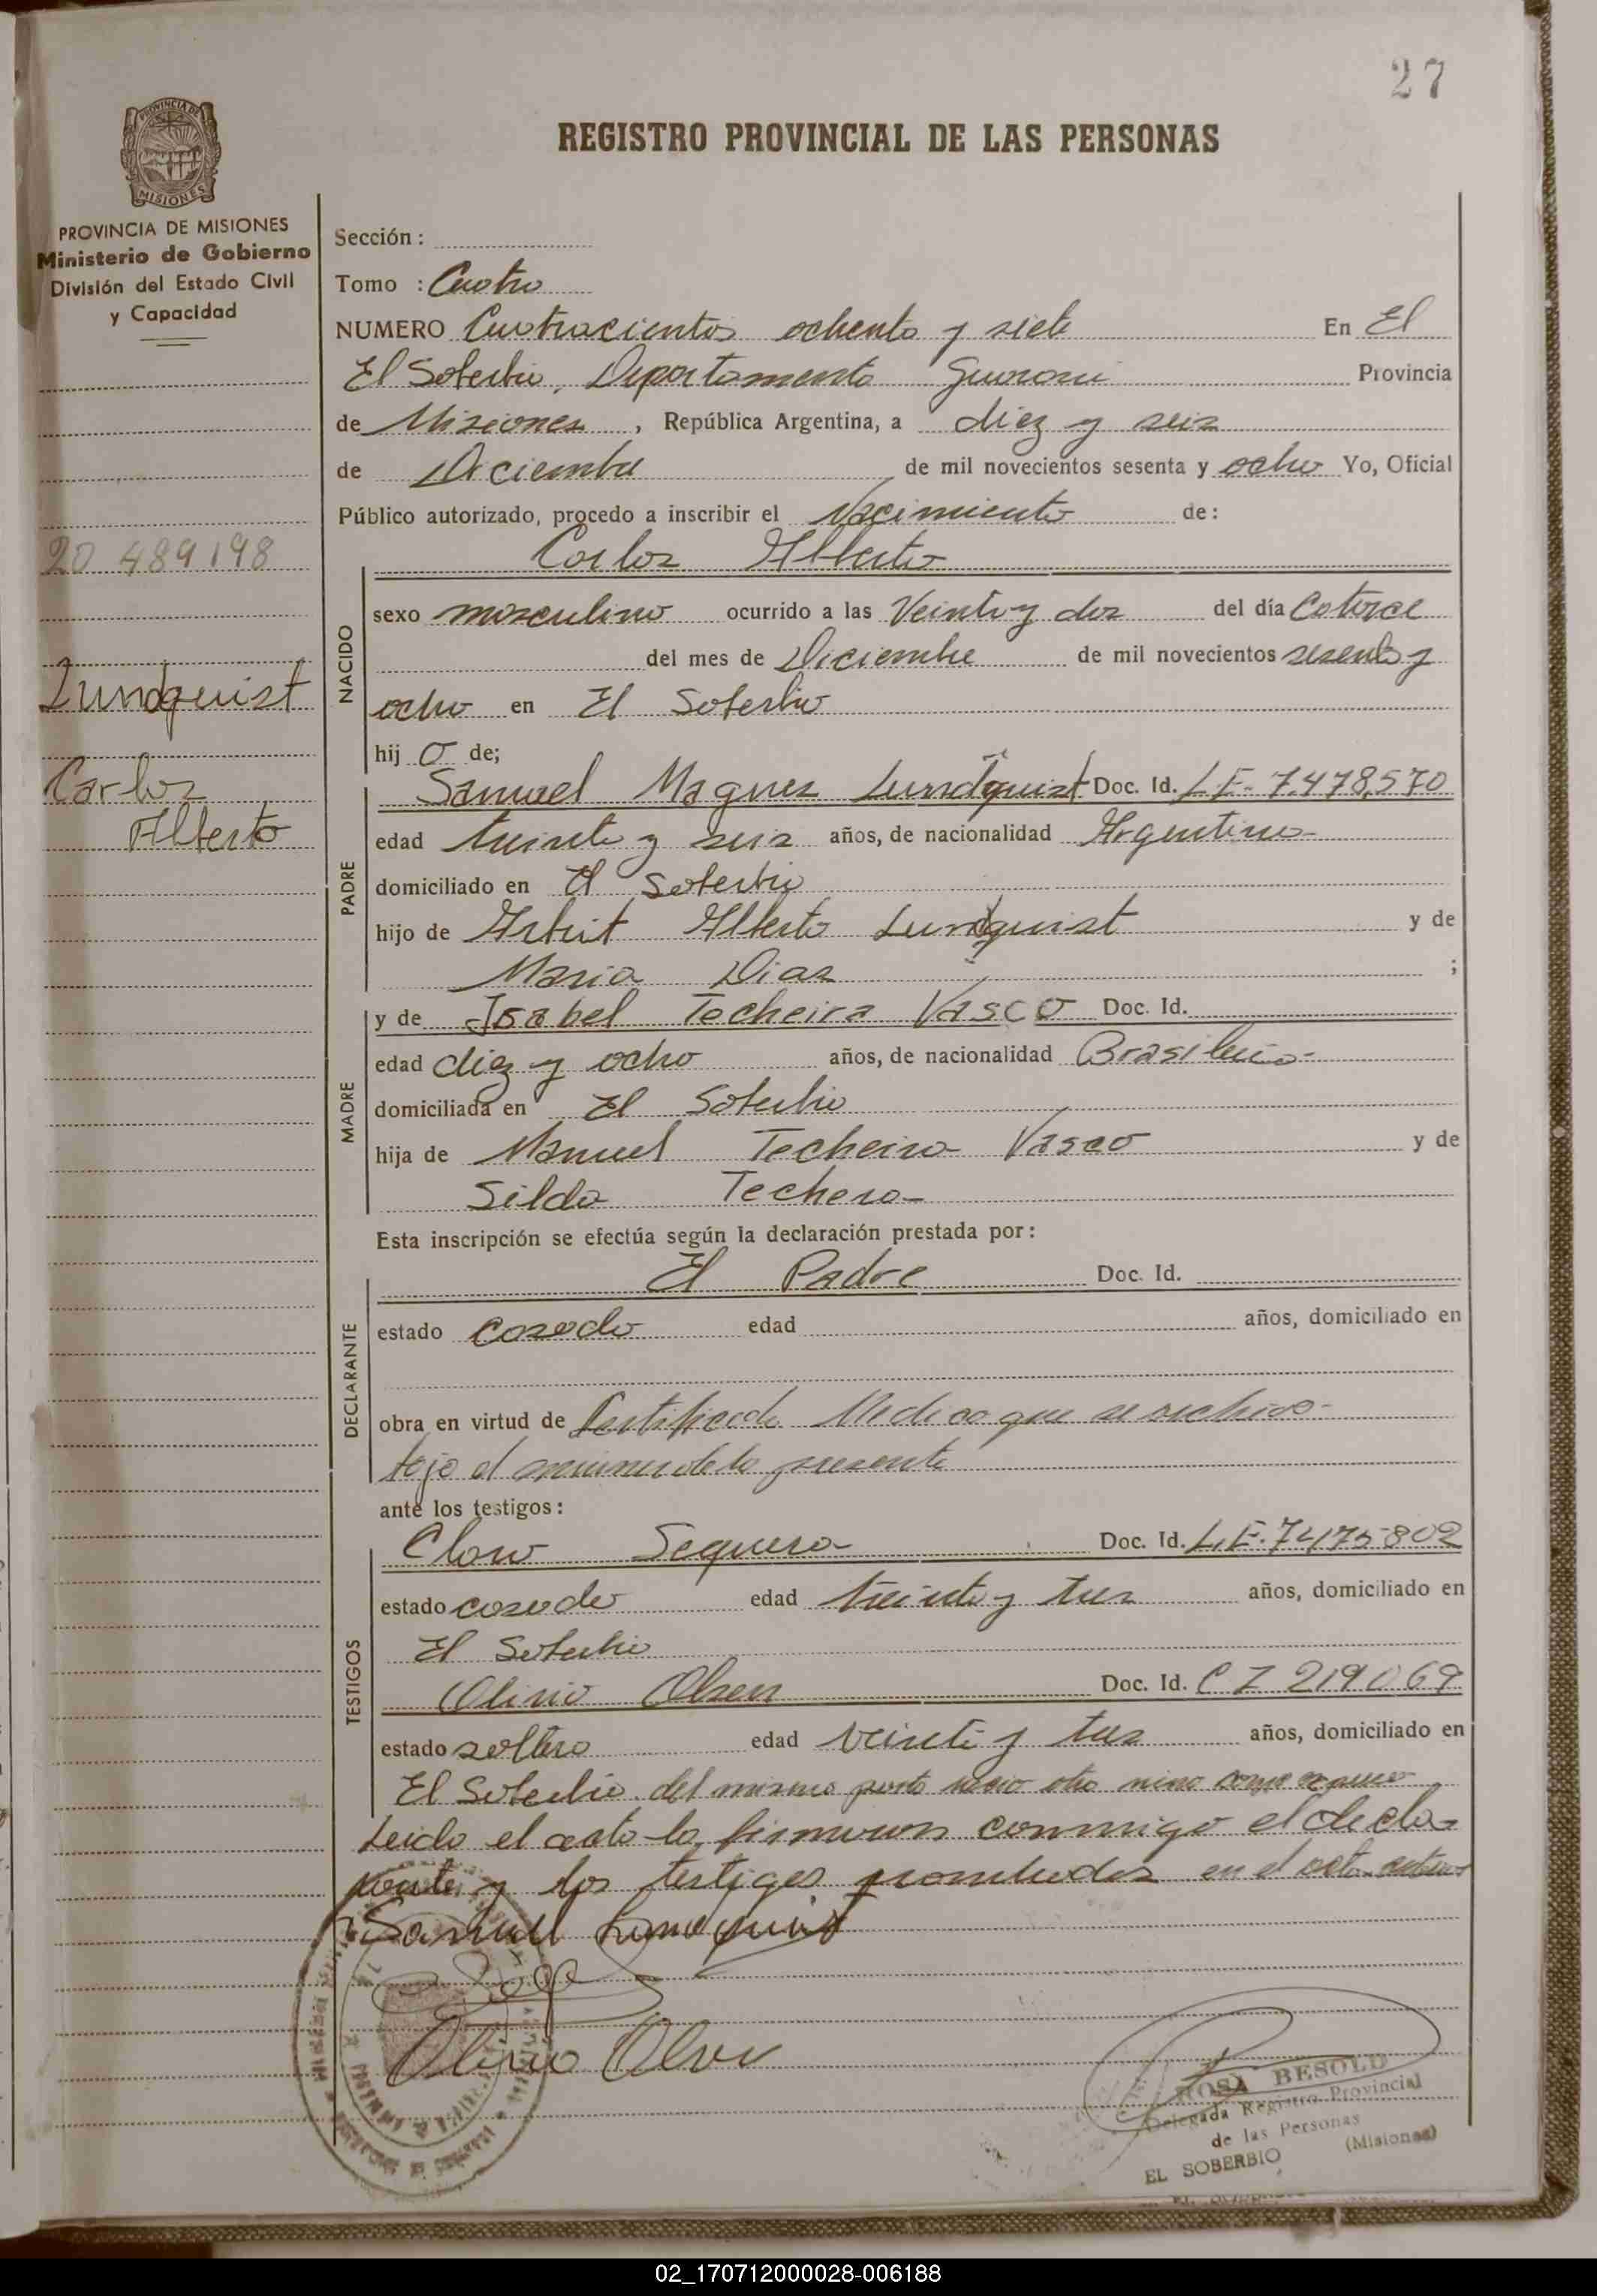 27
REGISTRO PROVINCIAL DE LAS PERSONAS
PROVINCIA DE
MISIONES
PROVINCIA DE MISIONES
Ministerio de Gobierno
División del Estado Civil
y Capacidad
20 489198
Lundquist
Carlos
Alberto
Sección :
Tomo : Cuatro
NUMERO Cuatrocientos ochenta y siete En El
El Soberbio, Departamento Guarani Provincia
de Misiones , República Argentina, a diez y seis
de Diciembre de mil novecientos sesenta y ocho Yo, Oficial
Público autorizado, procedo a inscribir el Nacimiento de:
Carlos Alberto
NACIDO
sexo masculino ocurrido a las Veinti y dos del día Catorce
del mes de Diciembre de mil novecientos sesenta y
ocho en El Soberbio
hij o de;
PADRE
Samuel Magnes Lundquist Doc. Id. L.E. 7.478,570
edad treinta y seis años, de nacionalidad Argentino
domiciliado en El Soberbio
hijo de Alberto Lundquist y de
Maria Dias ;
MADRE
y de Isabel Techeira Vasco Doc. Id.
edad diez y ocho años, de nacionalidad Brasileña
domiciliada en El Soberbio
hija de Manuel Techeira Vasco y de
Silda Techera
Esta inscripción se efectúa según la declaración prestada por:
DECLARANTE
El Padre Doc. Id.
estado casado edad años, domiciliado en
obra en virtud de Certificado Medico que se archiva
bajo el numero de la presente
ante los testigos:
TESTIGOS
Claro Sequera Doc. Id. L.E. 7475802
estado casado edad treinta y tres años, domiciliado en
El Soberbio
Olinio Olsen Doc. Id. C I 219069
estado soltero edad veinti y tres años, domiciliado en
El Soberbio. del mismo parto nacio otro nino
Leida el acta la firmaron conmigo el decla-
rante y los testigos nombrados en el acta
Samuel Lundquist
Olinio Olsen
ROSA BESOLD
Delegada Registro Provincial
de las Personas
EL SOBERBIO (Misiones)
02_170712000028-006188